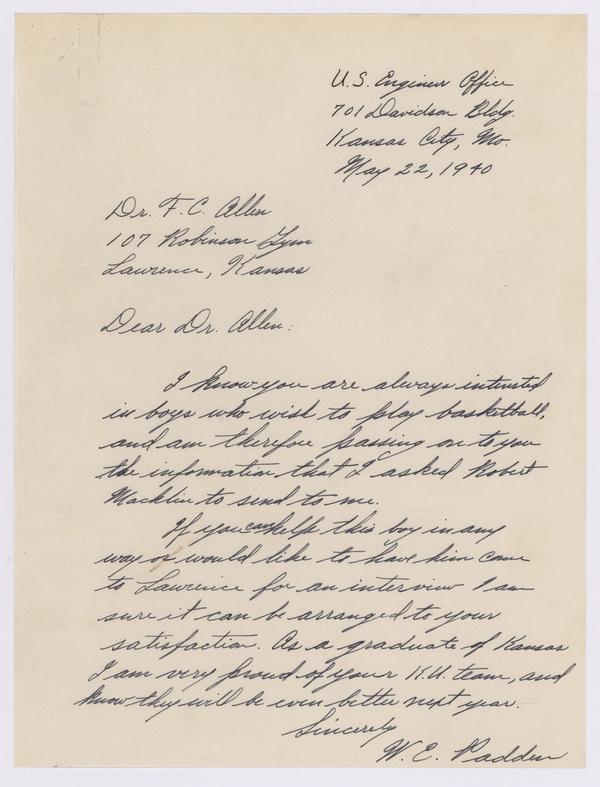 U.S. Engineer Office
701 Davidson Bldg.
Kansas City, Mo.
May 22, 1940
Dr. F. C. Allen
107 Robinson Gym
Lawrence, Kansas
Dear Dr. Allen:
I know you are always interested
in boys who wish to play basketball,
and am therefore passing on to you
the information that I asked Robert
Macklin to send to me.
If you can help this boy in any
way or would like to have him come
to Lawrence for an interview I am
sure it can be arranged to your
satisfaction. As a graduate of Kansas
I am very proud of your K.U. team, and
know they will be even better next year.
Sincerely
W. E. Padden